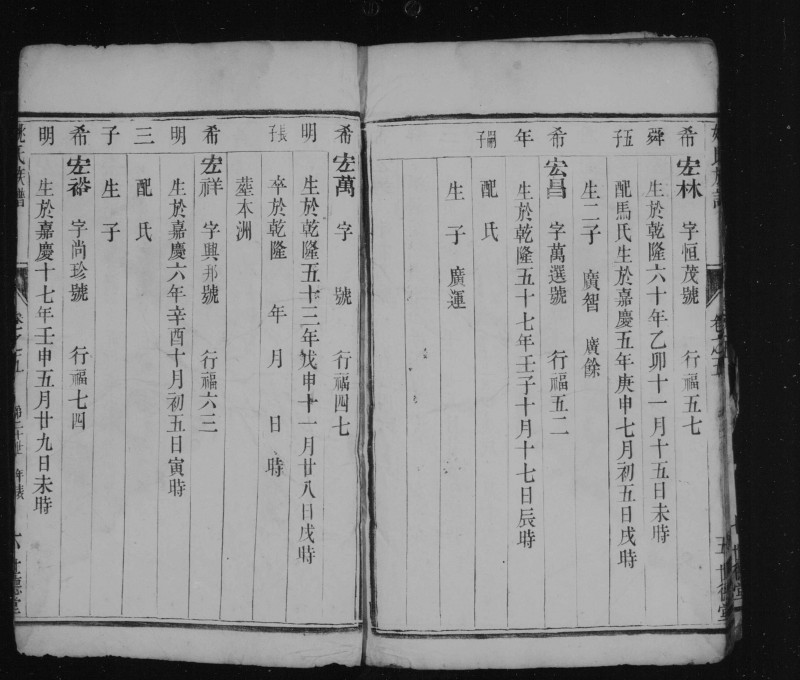 希宏林 字恒茂號 行福五七
舜 生於乾隆六十年乙卯十一月十五日未時
五子 配馬氏生於嘉慶五年庚申七月初五日戌時
生二子 廣智 廣餘
希宏昌 字萬選號 行福五二
年 生於乾隆五十七年壬子十月十七日辰時
嗣子 配氏
生子 廣運
希宏萬 字 號 行福四七
明 生於乾隆五十三年戊申十一月廿八日戌時
長子 卒於乾隆 年 月 日 時
塟本洲
希宏祥 字興邦號 行福六三
明 生於嘉慶六年辛酉十月初五日寅時
三 配氏
子 生子
希宏裕 字尚珍號 行福七四
明 生於嘉慶十七年壬申五月廿九日未時
姚氏族譜 卷之五 第二十世 年表 六 世德堂